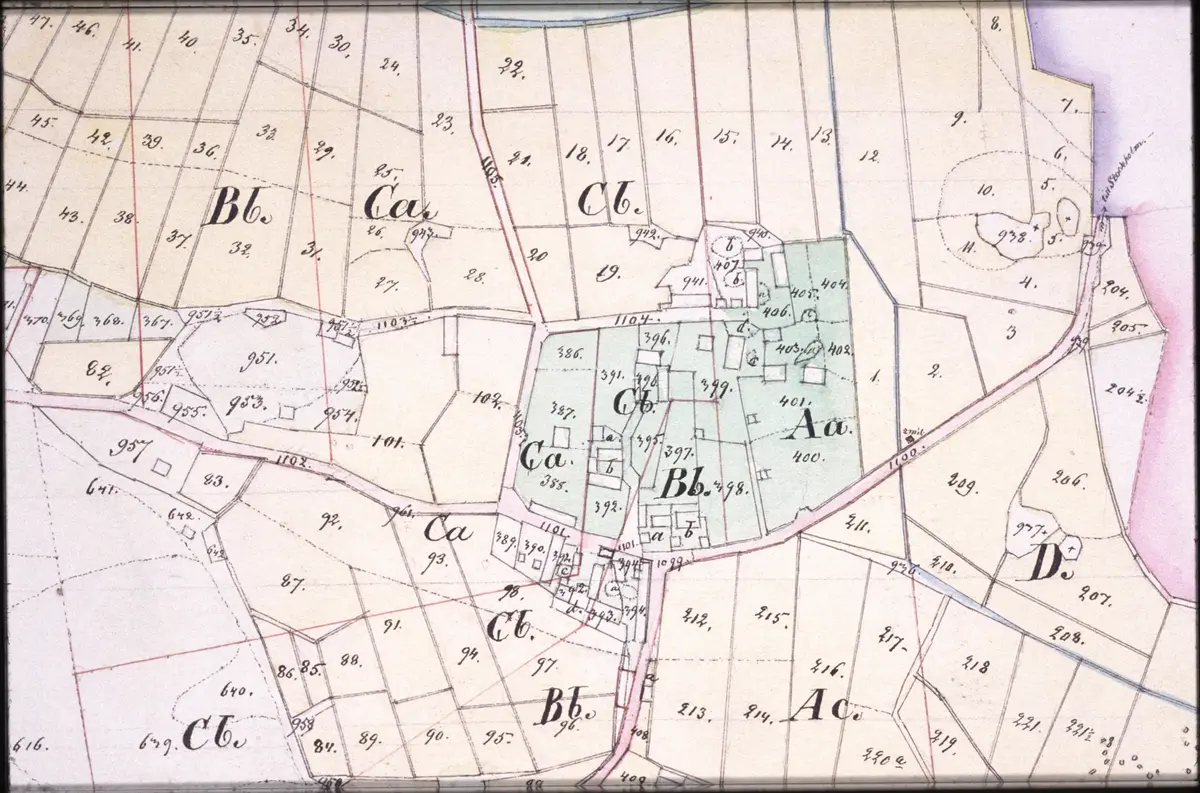 47. 46. 41. 40. 35. 34. 30. 24. 22. 8.
7.
45. 42. 39. 36. 33. 29. 23. 21. 18. 17 16. 15. 14. 13. 12. 9.
6.
1105.
till Stockholm.
44. 43. 38. 37. 32. 31. 25. 26. 943. 10. 5.
Bb. Ca. Cb.
942. 940. b 938. 5. 939.
27. 28. 20 19. 941. 407. b. 405. 404. 11. 4. 204.
370. 369. 368. 367. 951½ 952. 951½ 1103½ 1104. d. 406. c. 3 205.
82. 951. 386. 396. 403. 402. 204½
956. 955. 953. 954. 102. 387. 391. 399. c 401. 1. 2.
Cb. Aa.
957 101. 1102. 83. Ca. a b 395. 397. 400. 2 mil 1100. 209. 206.
385. 392. Bb. 398.
641. 642. 92. 961. Ca 1101. a b 211. 937. D.
93. 389. 390. 1101. 1099. 936. 210. 207.
87. 98. c d. 393. 394. 394. 208.
Cb. 212. 215. 217. 218
91. 94. 97. 216.
86. 85. 88. a
640. Bb. 213. 214. Ac. 221. 221½
616. 639. Cb. 958 84. 89. 90. 95. 96. 408 219.
220a
409.